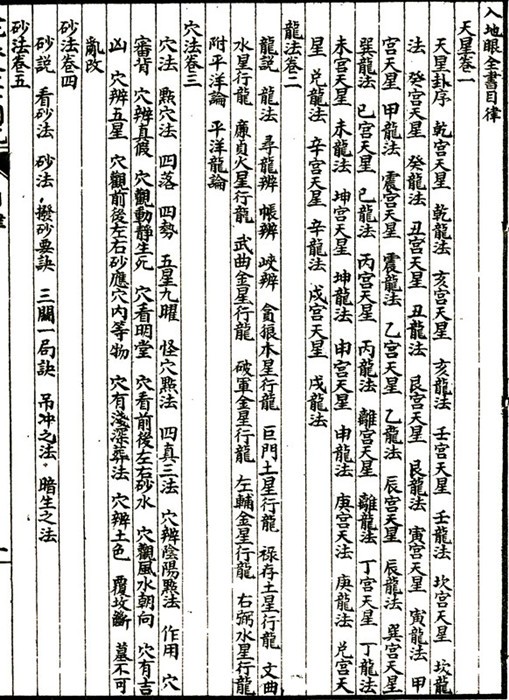 入地眼全書目律
天星卷一
天星卦序 乾宮天星 乾龍法 亥宮天星 亥龍法 壬宮天星 壬龍法 坎宮天星 坎龍
法 癸宮天星 癸龍法 丑宮天星 丑龍法 艮宮天星 艮龍法 寅宮天星 寅龍法 甲
宮天星 甲龍法 震宮天星 震龍法 乙宮天星 乙龍法 辰宮天星 辰龍法 巽宮天星
巽龍法 巳宮天星 巳龍法 丙宮天星 丙龍法 離宮天星 離龍法 丁宮天星 丁龍法
未宮天星 未龍法 坤宮天星 坤龍法 申宮天星 申龍法 庚宮天法 庚龍法 兌宮天
星 兌龍法 辛宮天星 辛龍法 戌宮天星 戌龍法
龍法卷二
龍說 龍法 尋龍辨 帳辨 峽辨 貪狼木星行龍 巨門土星行龍 祿存土星行龍 文曲
水星行龍 廉貞火星行龍 武曲金星行龍 破軍金星行龍 左輔金星行龍 右弼水星行龍
附平洋論 平洋龍論
穴法卷三
穴法 點穴法 四落 四勢 五星九曜 怪穴點法 四真三法 穴辨陰陽點法 作用 穴
審背 穴辨真假 穴觀動靜生死 穴看明堂 穴看前後左右砂水 穴觀風水朝向 穴有吉
凶 穴辨五星 穴觀前後左右砂應穴內等物 穴有淺深葬法 穴辨土色 覆墳斷 墓不可
亂改
砂法卷四
砂說 看砂法 砂法,撥砂要訣 三關一局訣 吊冲之法。暗生之法
砂法卷五